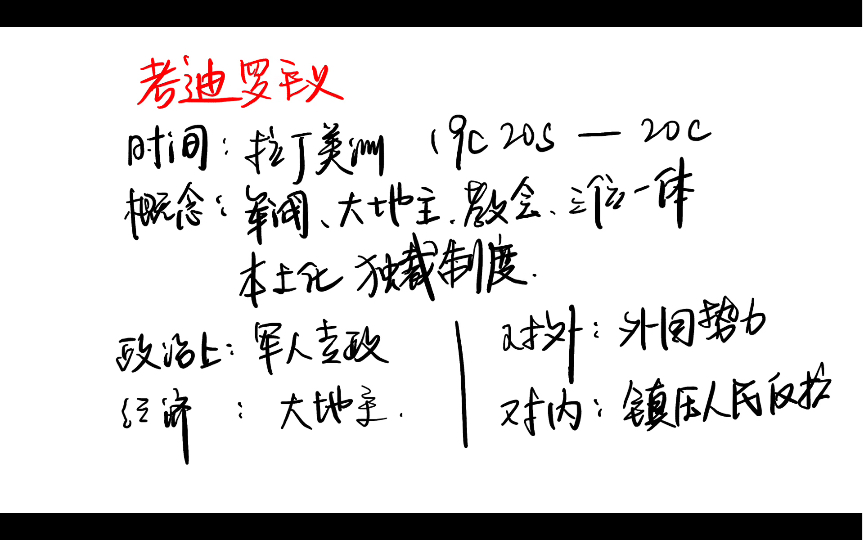 考迪罗主义
时间：拉丁美洲 19C 20S — 20C
概念：军阀、大地主、教会、三位一体
本土化 独裁制度.
政治上：军人专政
经济 ：大地主.
对外：外国势力
对内：镇压人民反抗